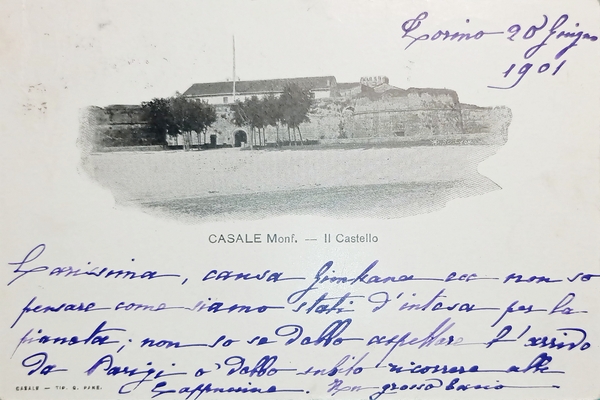 Torino 20 Giugno
1901
CASALE Monf. — Il Castello
Carissima, causa Gimkana ecc non so
pensare come siamo stati d'intesa per la
pianeta; non so se debbo aspettare l'arrivo
da Parigi o debbo subito ricorrere alle
Cappuccine. Un grosso bacio
CASALE — TIP. G. PANE.